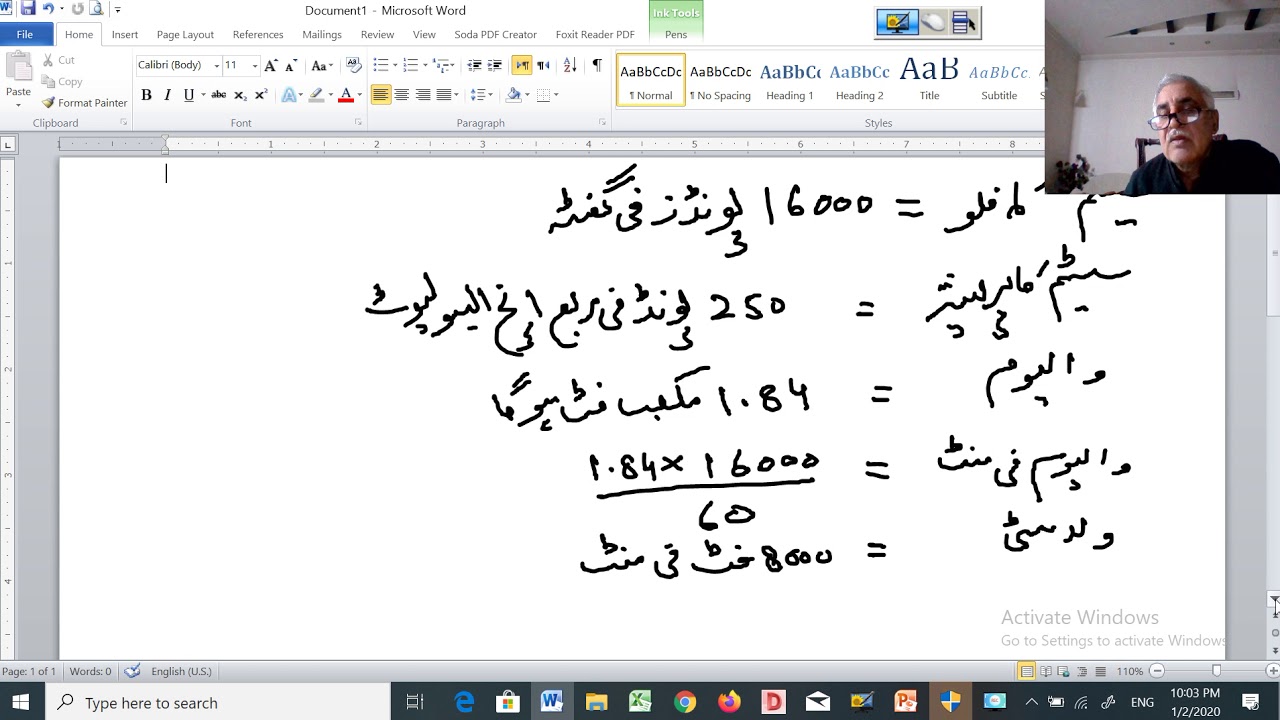 Document1 - Microsoft Word
Ink Tools
File Home Insert Page Layout References Mailings Review View Soda PDF Creator Foxit Reader PDF Pens
Paste
Cut
Copy
Format Painter
Calibri (Body) 11
AaBbCcDc AaBbCcDc AaBbCc AaBbCc AaB AaBbCc.
¶ Normal ¶ No Spacing Heading 1 Heading 2 Title Subtitle
Clipboard Font Paragraph Styles
1 1 2 3 4 5 6 7 8
کا فلو = 16000 پونڈز فی گھنٹہ
سٹیم کا پریشر = 250 پونڈ فی مربع انچ ایبسولیوٹ
والیوم = 1.84 مکعب فٹ ہو گا
والیوم فی منٹ = 1.84 × 16000
60
ولاسٹی = 8000 فٹ فی منٹ
Activate Windows
Go to Settings to activate Windows
Page: 1 of 1 Words: 0 English (U.S.) 110%
Type here to search
ENG
10:03 PM
1/2/2020